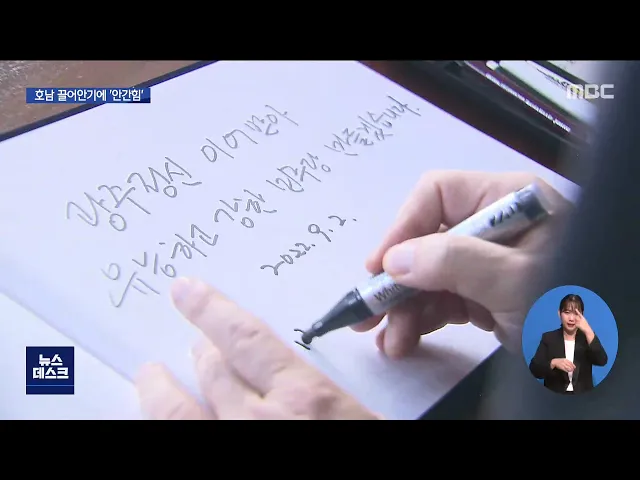 호남 끌어안기에 '안간힘'
MBC
광주정신 이어받아
유능하고 강한 민주당 만들겠습니다.
2022. 9. 2.
뉴스
데스크